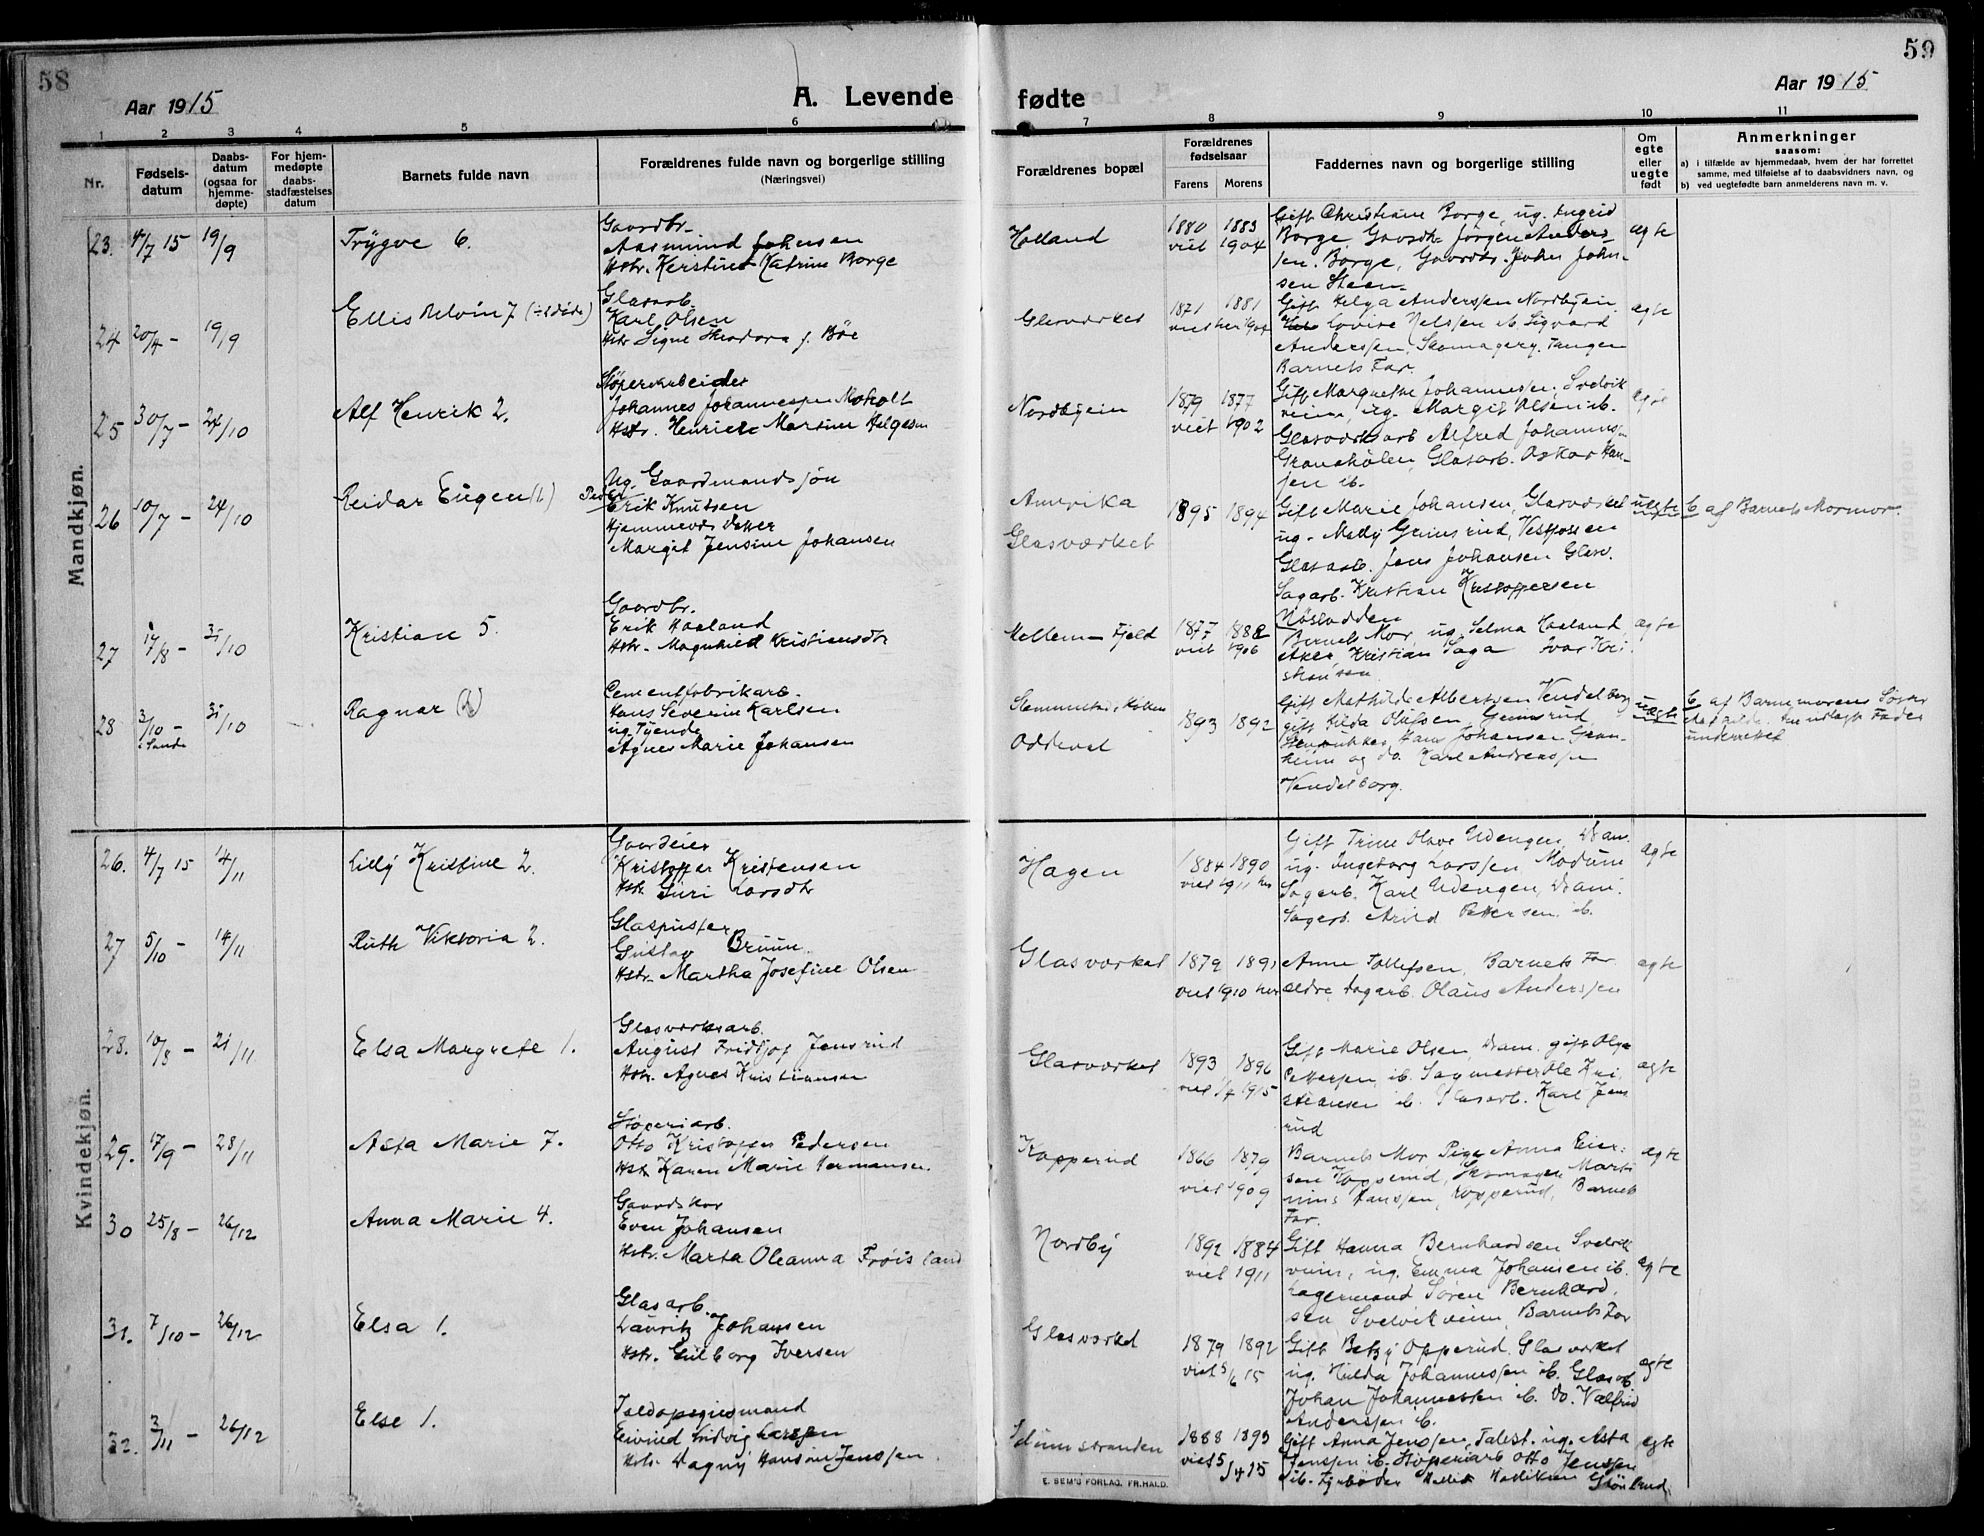 58
59
Aar 1915
A. Levende
fødte
Aar 1915
1 2 3 4 5 6 7 8 9 10 11
Nr.
Fødsels-
datum
Daabs-
datum
(ogsaa for
hjemme-
døpte)
For hjem-
medøpte
daabs-
stadfæstelses
datum
Barnets fulde navn
Forældrenes fulde navn og borgerlige stilling
(Næringsvei)
Forældrenes bopæl
Forældrenes
fødselsaar
Farens Morens
Faddernes navn og borgerlige stilling
Om
egte
eller
uegte
født
Anmerkninger
saasom:
a) i tilfælde av hjemmedaab, hvem der har forrettet
samme, med tilføielse av to daabsvidners navn, og
b) ved uegtefødte barn anmelderens navn m. v.
Mandkjøn.
23. 4/7 15 19/9
Trygve 6.
Gaardbr.
Aasmund Johnsen
Hstr. Kerstine Katrine Borge
Holland
1880 1883
viet 1904
Gift Christiane Borge, ug. Ingrid
Borge, Gaardbr. Jørgen Anders-
sen. Borge, Gaardbr. John John-
sen Steen
egte
24 20/7 - 19/9
Ellis Delvin 7
Glasarb.
Karl Olsen
Hstr Signe Theodora f. Bøe
Glasværket
1871 1881
viet her 1904
Gift Helga Anderssen Nordbyein
Lovise Nelssen ib. Sigvard
Anderssen, Skomager, Tangen
Barnets Far.
egte
25 30/7 - 24/10
Alf Henrik 2.
Støperiarbeider
Johannes Johannessen Moholt
Hstr. Henriette Martine Helgesen
Nordbyein
1879 1877
viet 1902
Gift Margrethe Johannessen, Svelvik
veien, ug. Margit Olsen ib.
Glasværksarb Alfred Johannes-
Granehølen, Glasarb. Oskar Han-
sen ib.
egte
26 10/7 - 24/10
Reidar Eugen (1)
Ug. Gaardmandssøn
Peder
Erik Knutsen
Hjemmevær. Datter
Margit Jensine Johansen
Amerika
Glasværket
1895 1894
Gift Marie Johansen, Glasværket
ug. Molly Grimsrud, Vestfossen
Glasarb. Jens Johansen Glasv.
Sagarb. Kristian Kristoffersen
Nøsladden
uegte
E af Barnets Mormor.
27 17/8 - 31/10
Kristian 5.
Gaardbr.
Erik Haaland
Hstr. Magnhild Kristiansdtr
Mellem-Fjeld
1877 1882
viet 1906
Barnets Mor, ug. Selma Haaland
Aker, Kristian Saga Ivar Kri-
stiansen
egte
28 3/10 - 31/10
i Sande
Ragnar (1)
Cementfabrikarb.
Hans Severin Karlsen
ug. Tjende
Agnes Marie Johansen
Slemmestad
Oddeval
1893 1892
Gift Mathilde Albertsen Vendelborg
gift Hilda Olafsen, Grimsrud,
Hans Johansen Gran-
heim og do. Karl Andreassen
Vendelborg.
uegte
E af Barnemorens Søster
Den udlagte Fader
underrettet
Kvindekjøn.
26. 4/7 15 14/11
Lilly Kristine 2.
Gaardeier
Kristoffer Kristensen
Hstr. Guri Larsdtr
Hagen
1884 1890
viet 1911 her
Gift Trine Olave Udengen, Dram.
ug. Ingeborg Larssen Modum
Sagarb. Karl Udengen, Dram.
Sagarb. Arild Pettersen ib.
egte
27 5/10 - 14/11
Ruth Viktoria 2.
Glaspuster
Gustav Bruun
Hstr. Martha Josefine Olsen
Glasværket
1879 1891
viet 1910 her
Anne Tollefsen, Barnets For
ældre, Dagarb. Olaus Anderssen
egte
28. 10/8 - 21/11
Elsa Margrete 1.
Glasværksarb.
August Fridtjof Jensrud
Hstr. Agnes Kristiansen
Glasværket
1893 1896
viet 1/7 1915
Gift Marie Olsen, Dram. gift Olga
Pettersen, ib. Sagmester Ole Kri-
stiansen ib. Glasarb. Karl Jens
rud
egte
29. 17/9 - 28/11
Asta Marie 7.
Støperiarb.
Otto Kristoffer Pedersen
Hstr Karen Marie Hermansen
Kopperud
1866 1879
viet 1909
Barnets Mor Pige Anna Peder-
sen Kopperud, Skomager Marti
nius Hanssen, Kopperud, Barnets
Far.
egte
30 25/8 - 26/12
Anna Marie 4.
Gaardskar
Even Johansen
Hstr. Marta Oleanna Frøisland
Nordby
1892 1884
viet 1911
Gift Hanna Bernhardsen Svelvik
veien, ug. Emma Johansen ib.
Lagermand Søren Bernhard-
sen Svelvikveien, Barnets Far
egte
31. 7/10 - 26/12
Elsa 1.
Glasarb.
Lauritz Johansen
Hstr. Gulborg Iversen
Glasværket
1879 1892
viet 5/6 15
Gift Betzy Opperud, Glasværket
ug. Hulda Johannessen ib. Glasarb.
Johan Johannessen ib. do. Valfrid
Anderssen ib.
egte
32. 3/11 - 26/12
Else 1.
Toldopsynsmand
Eivind Ludvig Larssen
Hstr. Dagny Hansine Jenssen
Solumstranden
1888 1893
viet 5/4 15
Gift Anna Jenssen, ug. Asta
Jenssen ib. Støperiarb Otto Jenssen
ib. Fyrbøder
egte
E. SEM'S FORLAG, FR.HALD.